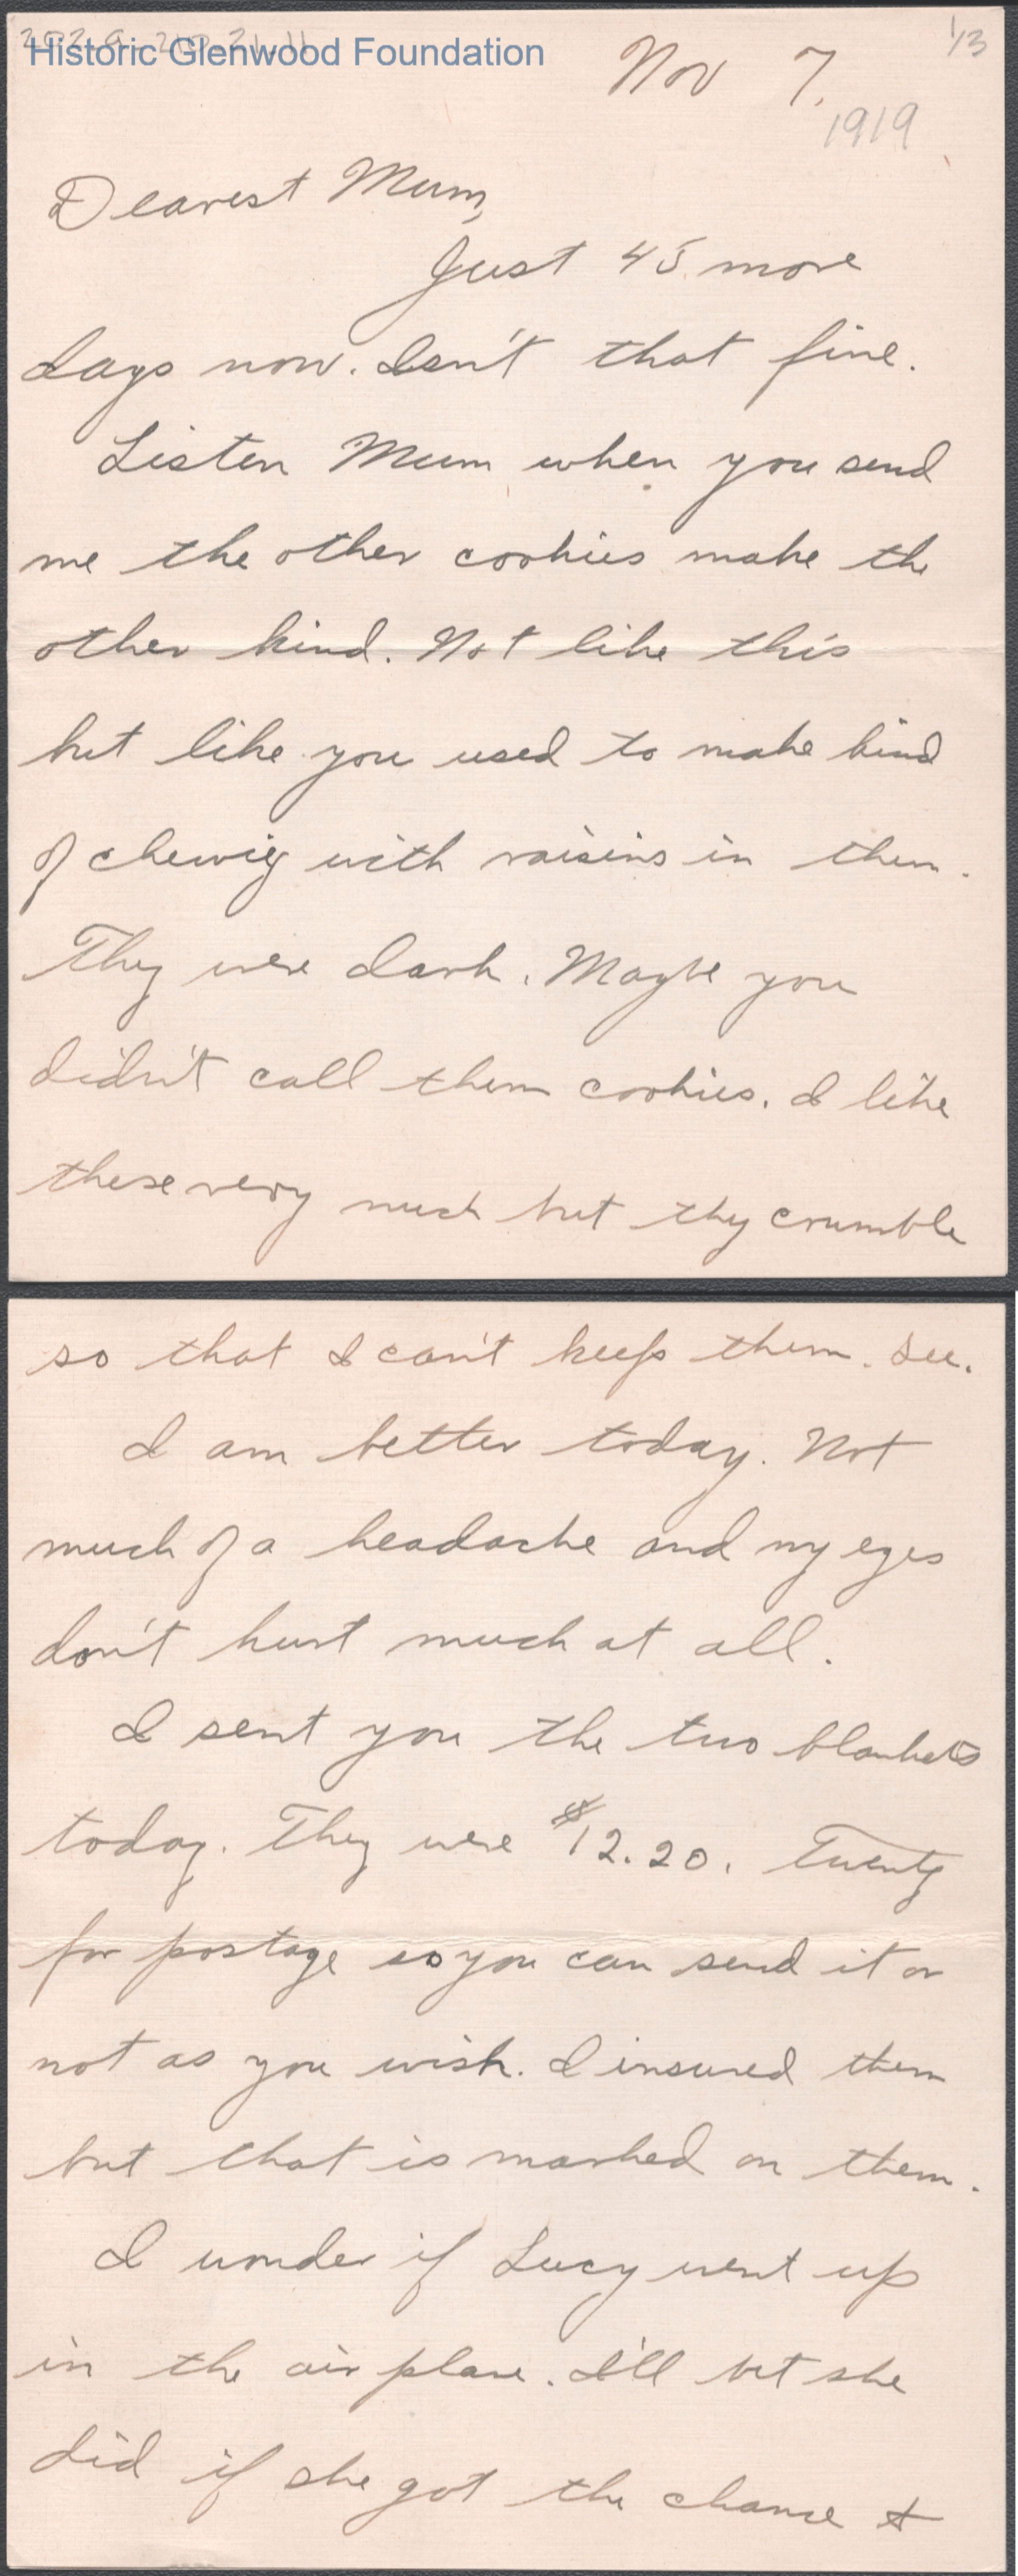 202.9-210.21.11
Historic Glenwood Foundation
1/3
Nov 7,
1919
Dearest Mum,
Just 45 more
days now. Isn't that fine.
Listen Mum when you send
me the other cookies make the
other kind. Not like this
but like you used to make kind
of chewig with raisins in them.
They were dark. Maybe you
didn't call them cookies. I like
these very much but they crumble
so that I can't keep them. See.
I am better today. Not
much of a headache and my eyes
don't hurt much at all.
I sent you the two blankets
today. They were $12.20. Twenty
for postage so you can send it or
not as you wish. I insured them
but that is marked on them.
I wonder if Lucy went up
in the air plane. I'll bet she
did if she got the chance &